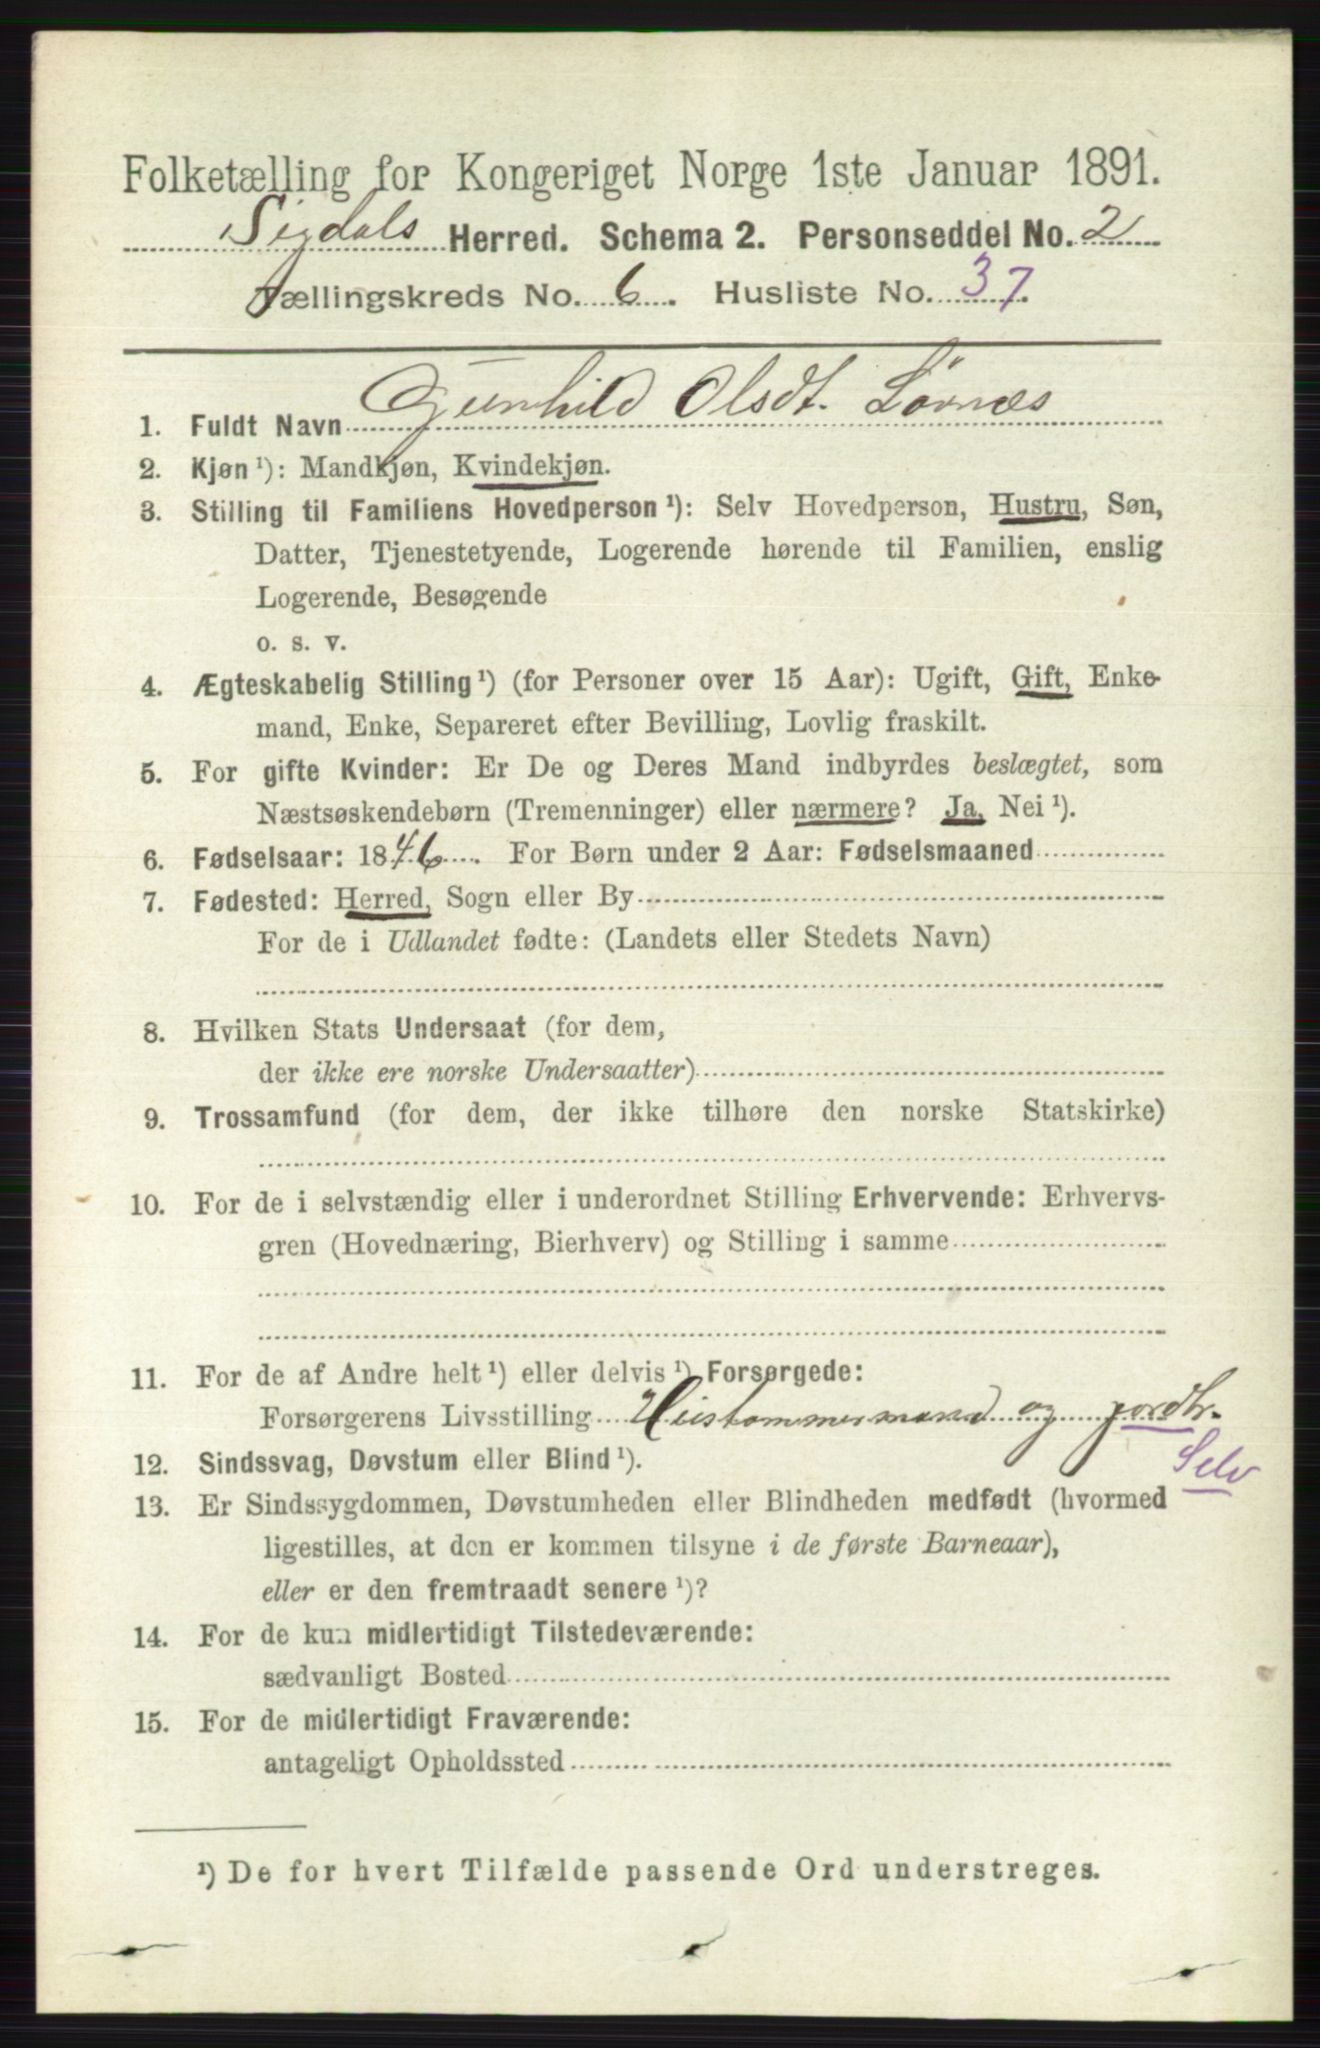 Folketælling for Kongeriget Norge 1ste Januar 1891.
Sigdals Herred. Schema 2. Personseddel No. 2
Tællingskreds No. 6. Husliste No. 37.
1. Fuldt Navn Gunhild Olsdt. Lövnæs
2. Kjøn ¹): Mandkjøn, Kvindekjøn.
3. Stilling til Familiens Hovedperson ¹): Selv Hovedperson, Hustru, Søn,
Datter, Tjenestetyende, Logerende hørende til Familien, enslig
Logerende, Besøgende
o. s. v.
4. Ægteskabelig Stilling ¹) (for Personer over 15 Aar): Ugift, Gift, Enke-
mand, Enke, Separeret efter Bevilling, Lovlig fraskilt.
5. For gifte Kvinder: Er De og Deres Mand indbyrdes beslægtet, som
Næstsøskendebørn (Tremenninger) eller nærmere? Ja, Nei ¹).
6. Fødselsaar: 1846. For Børn under 2 Aar: Fødselsmaaned
7. Fødested: Herred, Sogn eller By
For de i Udlandet fødte: (Landets eller Stedets Navn)
8. Hvilken Stats Undersaat (for dem,
der ikke ere norske Undersaatter)
9. Trossamfund (for dem, der ikke tilhøre den norske Statskirke)
10. For de i selvstændig eller i underordnet Stilling Erhvervende: Erhvervs-
gren (Hovednæring, Bierhverv) og Stilling i samme
11. For de af Andre helt ¹) eller delvis ¹) Forsørgede:
Forsørgerens Livsstilling Hustømmermand og jordbr.
Selv
12. Sindssvag, Døvstum eller Blind ¹).
13. Er Sindssygdommen, Døvstumheden eller Blindheden medfødt (hvormed
ligestilles, at den er kommen tilsyne i de første Barneaar),
eller er den fremtraadt senere ¹)?
14. For de kun midlertidigt Tilstedeværende:
sædvanligt Bosted
15. For de midlertidigt Fraværende:
antageligt Opholdssted
¹) De for hvert Tilfælde passende Ord understreges.